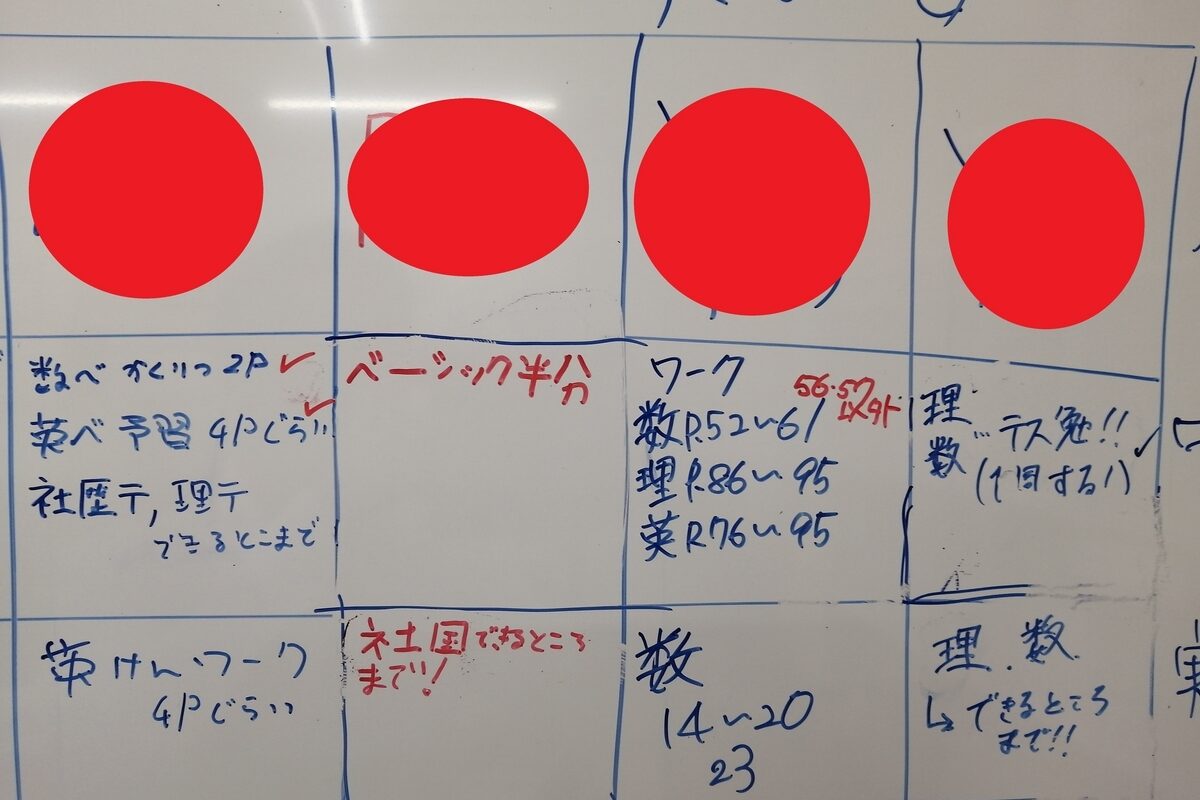 数べ かくりつ 2P ✓
英べ 予習 4Pぐらい ✓
社歴テ, 理テ
できるとこまで
ベーシック半分
ワーク
56・57
数P.52〜61
理P.86〜95
英P.76〜95
理
数 … テス勉!!
(1回する!) ✓
英けん・ワーク
4Pぐらい
社国できるところ
まで!!
数
14〜20
23
理.数
↳できるところ
まで!!